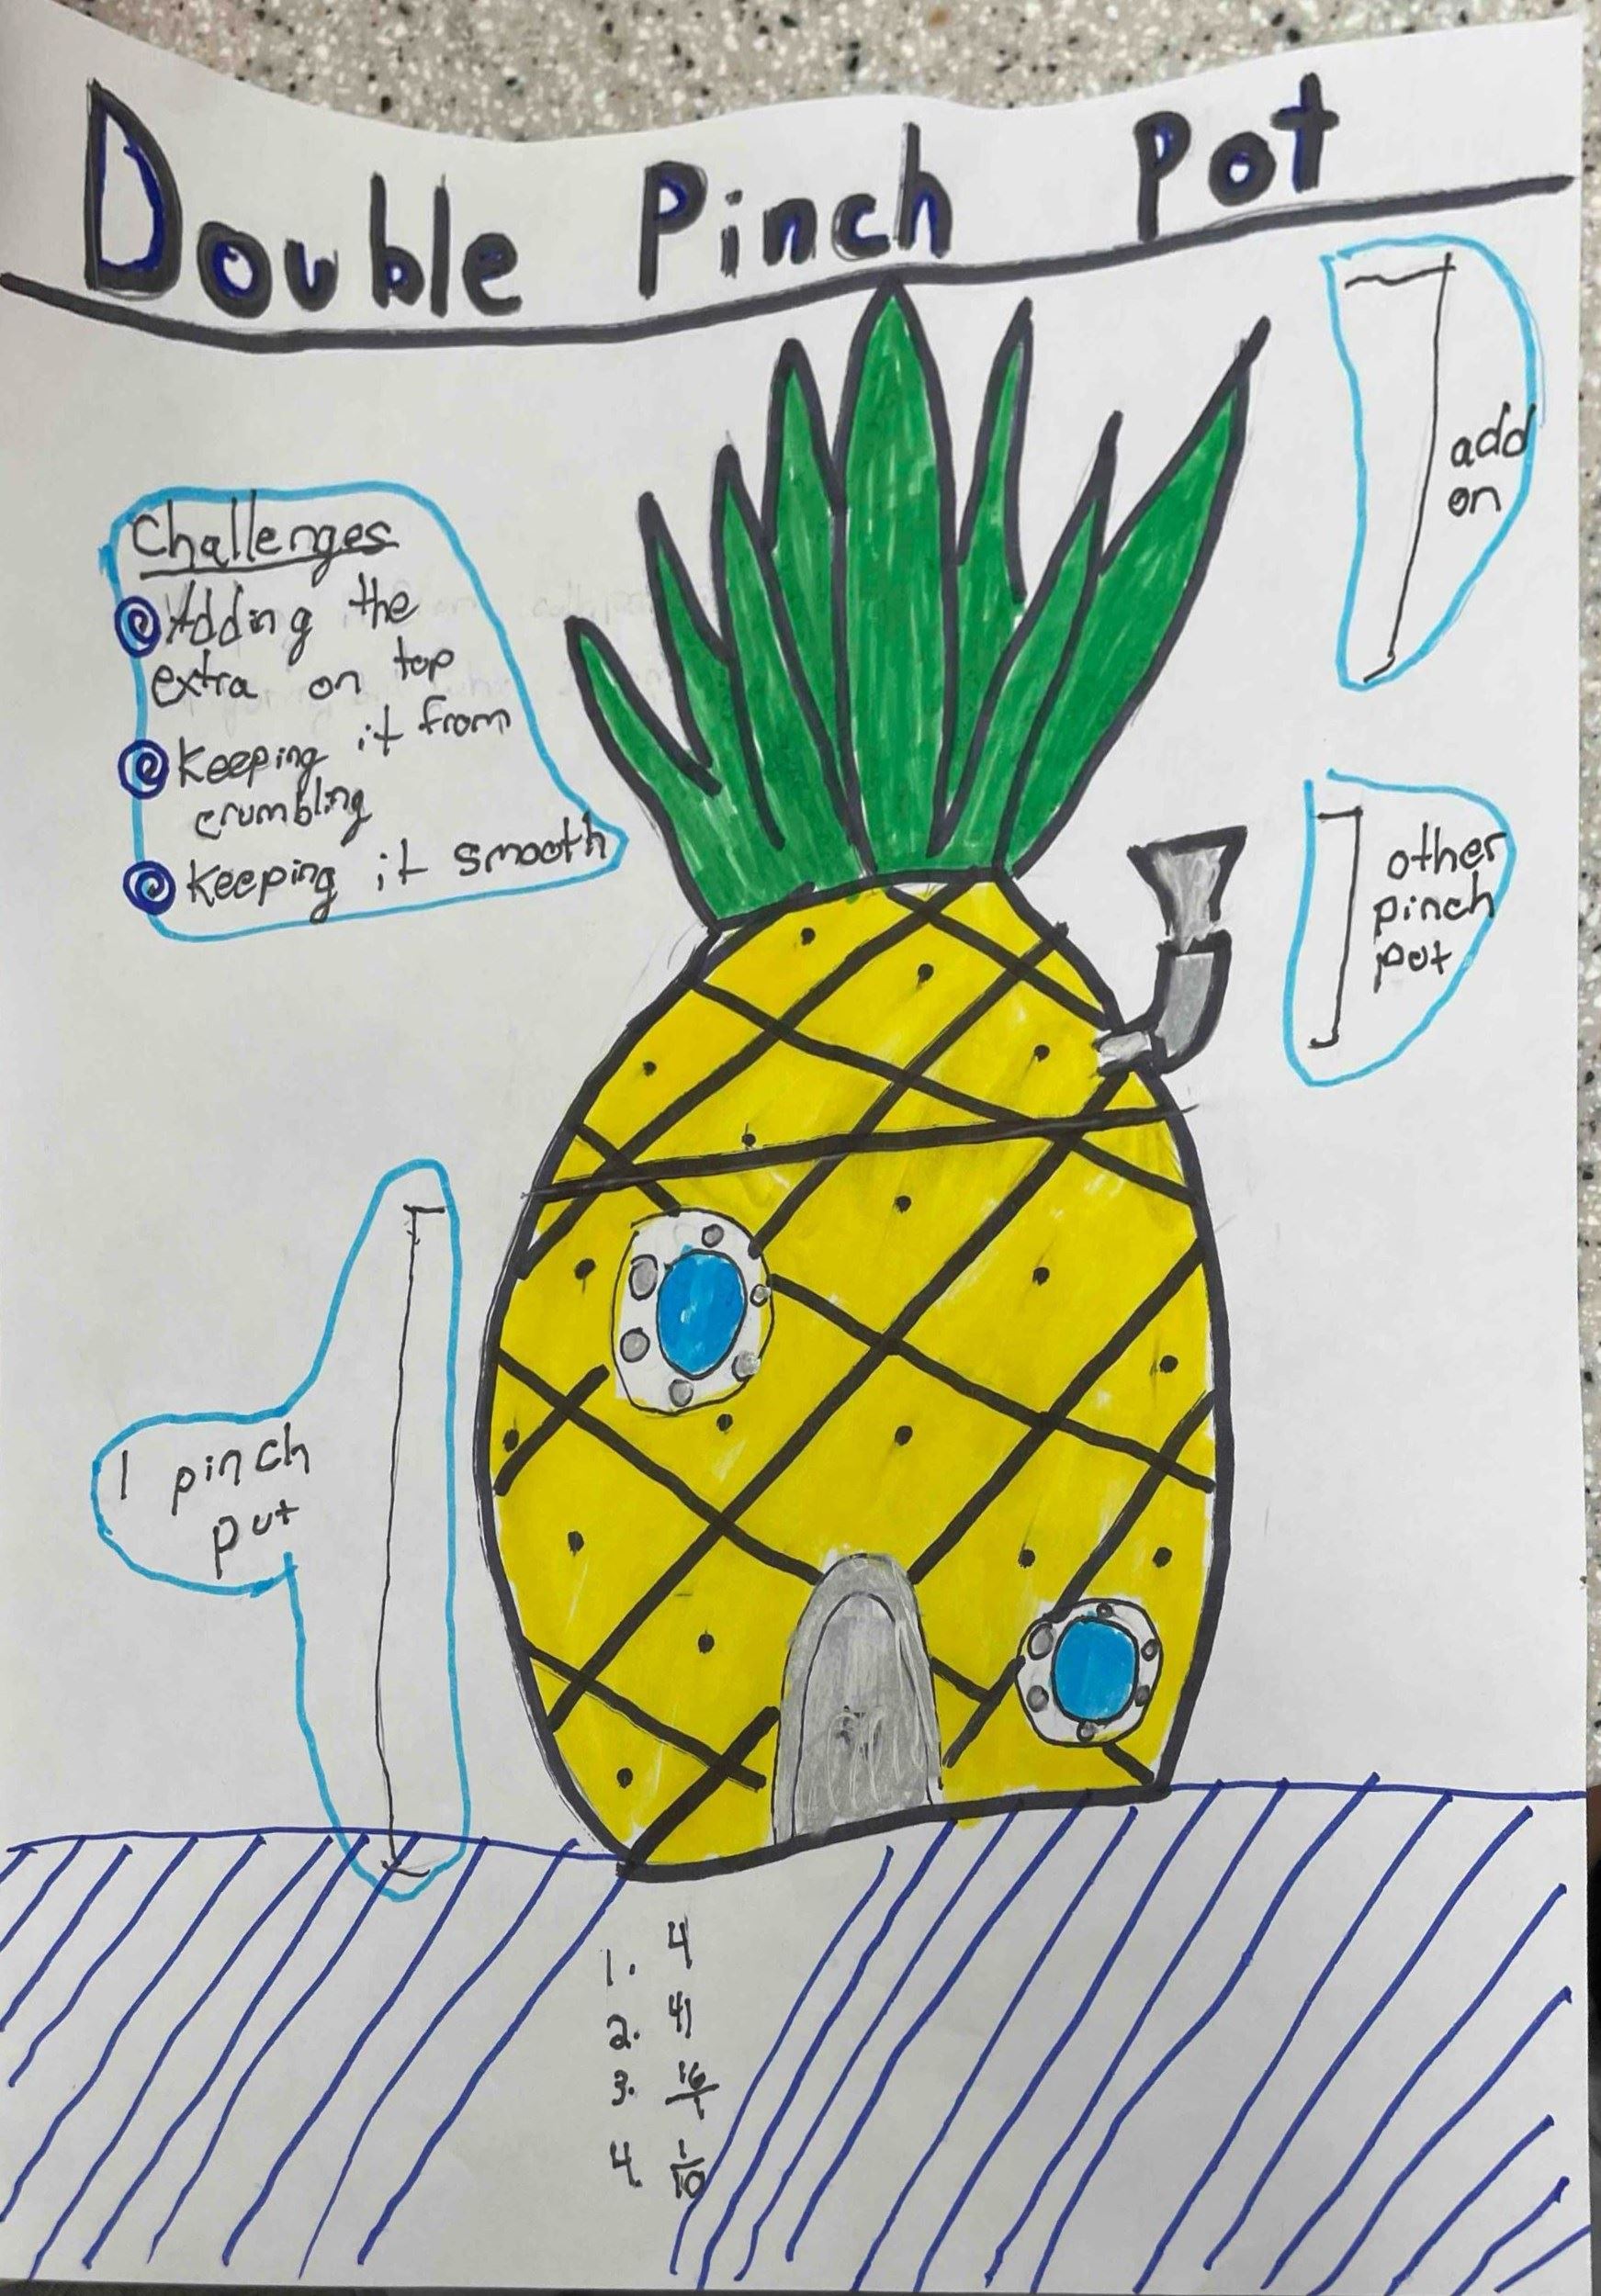 Double Pinch Pot
Challenges
Adding the
extra on top
Keeping it from
crumbling
Keeping it smooth
add
on
other
pinch
pot
1 pinch
pot
1. 4
2. 41
3. 16/1
4. 1/10